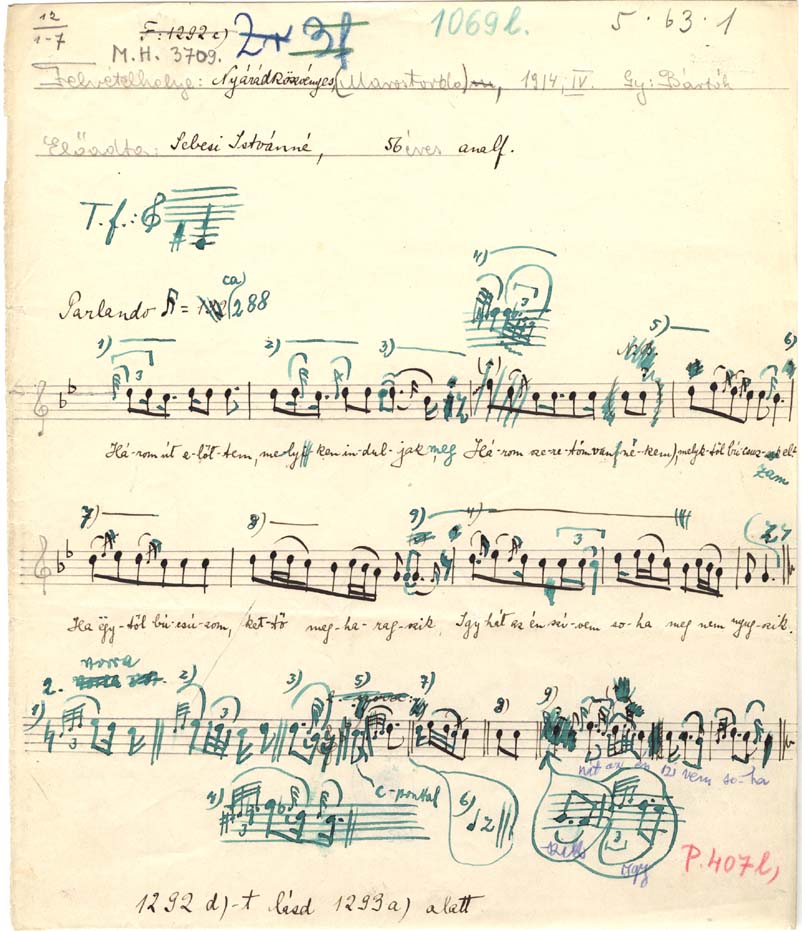 12 F. 1292 c) Z+ 3f 1069 l. 5.63.1
1-7
M.H. 3709.
Felvétel helye: Nyárádköszvényes, (Marostorda), 1914, IV. Gy: Bartók
Előadta: Sebesi Istvánné, 56 éves analf.
T. f.:
ca)
Parlando = (288
4)
1) 3 2) 3) 5) 6)
Há-rom út e-lőt-tem, me-lyi-ken in-dul-jak meg Há-rom sze-re-tőm van (né-kem), melyk-től bú-csuz-
zam
7) 8) 9) 4) 3
Ha ëgy-től bú-csú-zom, ket-tő meg-ha-rag-szik, Igy hát az én szí-vem so-ha meg nem nyug-szik.
2. vorra
1) 3 2) 3 3) 5) 7) 8) 9)
az én szi vem so-ha
4) c-ponttal 6)
P. 407 l,
1292 d)-t lásd 1293 a) alatt